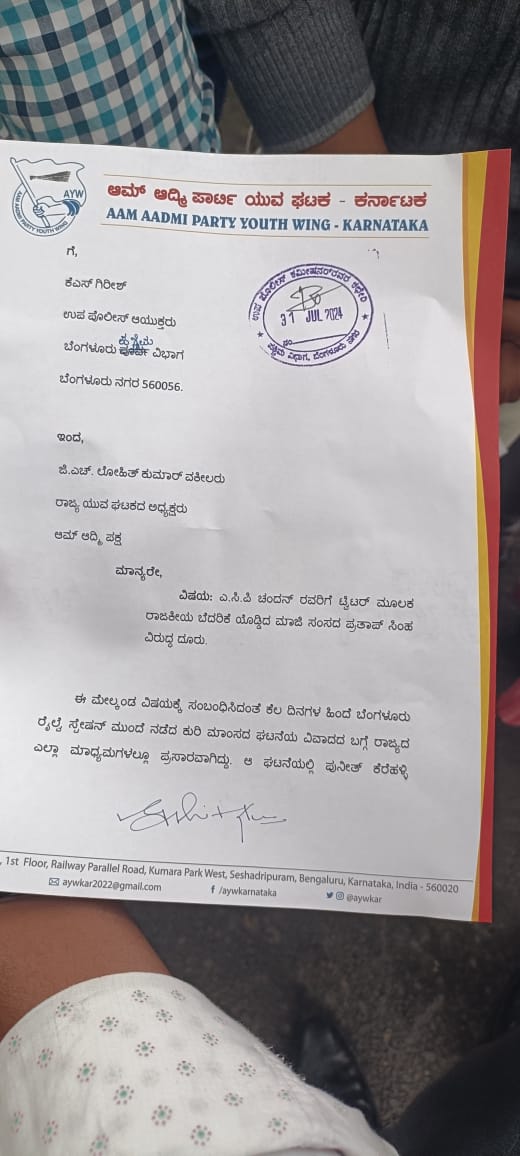 AYW
AAM AADMI PARTY YOUTH WING
ಆಮ್ ಆದ್ಮಿ ಪಾರ್ಟಿ ಯುವ ಘಟಕ - ಕರ್ನಾಟಕ
AAM AADMI PARTY YOUTH WING - KARNATAKA
ಗೆ,
ಕೆಎಸ್ ಗಿರೀಶ್
ಉಪ ಪೊಲೀಸ್ ಆಯುಕ್ತರು
ಬೆಂಗಳೂರು ವಿಭಾಗ
ಬೆಂಗಳೂರು ನಗರ 560056.
ಉಪ ಪೊಲೀಸ್ ಕಮೀಷನರ್‌ರವರ ಕಛೇರಿ
31 JUL 2024
ನಂ
ಪಶ್ಚಿಮ ವಿಭಾಗ, ಬೆಂಗಳೂರು ನಗರ
ಇಂದ,
ಜಿ.ಎಚ್. ಲೋಹಿತ್ ಕುಮಾರ್ ವಕೀಲರು
ರಾಜ್ಯ ಯುವ ಘಟಕದ ಅಧ್ಯಕ್ಷರು
ಆಮ್ ಆದ್ಮಿ ಪಕ್ಷ
ಮಾನ್ಯರೇ,
ವಿಷಯ: ಎ.ಸಿ.ಪಿ ಚಂದನ್ ರವರಿಗೆ ಟ್ವಿಟರ್ ಮೂಲಕ
ರಾಜಕೀಯ ಬೆದರಿಕೆ ಯೊಡ್ಡಿದ ಮಾಜಿ ಸಂಸದ ಪ್ರತಾಪ್ ಸಿಂಹ
ವಿರುದ್ಧ ದೂರು.
ಈ ಮೇಲ್ಕಂಡ ವಿಷಯಕ್ಕೆ ಸಂಬಂಧಿಸಿದಂತೆ ಕೆಲ ದಿನಗಳ ಹಿಂದೆ ಬೆಂಗಳೂರು
ರೈಲ್ವೆ ಸ್ಟೇಷನ್ ಮುಂದೆ ನಡೆದ ಕುರಿ ಮಾಂಸದ ಘಟನೆಯ ವಿವಾದದ ಬಗ್ಗೆ ರಾಜ್ಯದ
ಎಲ್ಲಾ ಮಾಧ್ಯಮಗಳಲ್ಲೂ ಪ್ರಸಾರವಾಗಿದ್ದು. ಆ ಘಟನೆಯಲ್ಲಿ ಪುನೀತ್ ಕೆರೆಹಳ್ಳಿ
, 1st Floor, Railway Parallel Road, Kumara Park West, Seshadripuram, Bengaluru, Karnataka, India - 560020
aywkar2022@gmail.com /aywkarnataka @aywkar